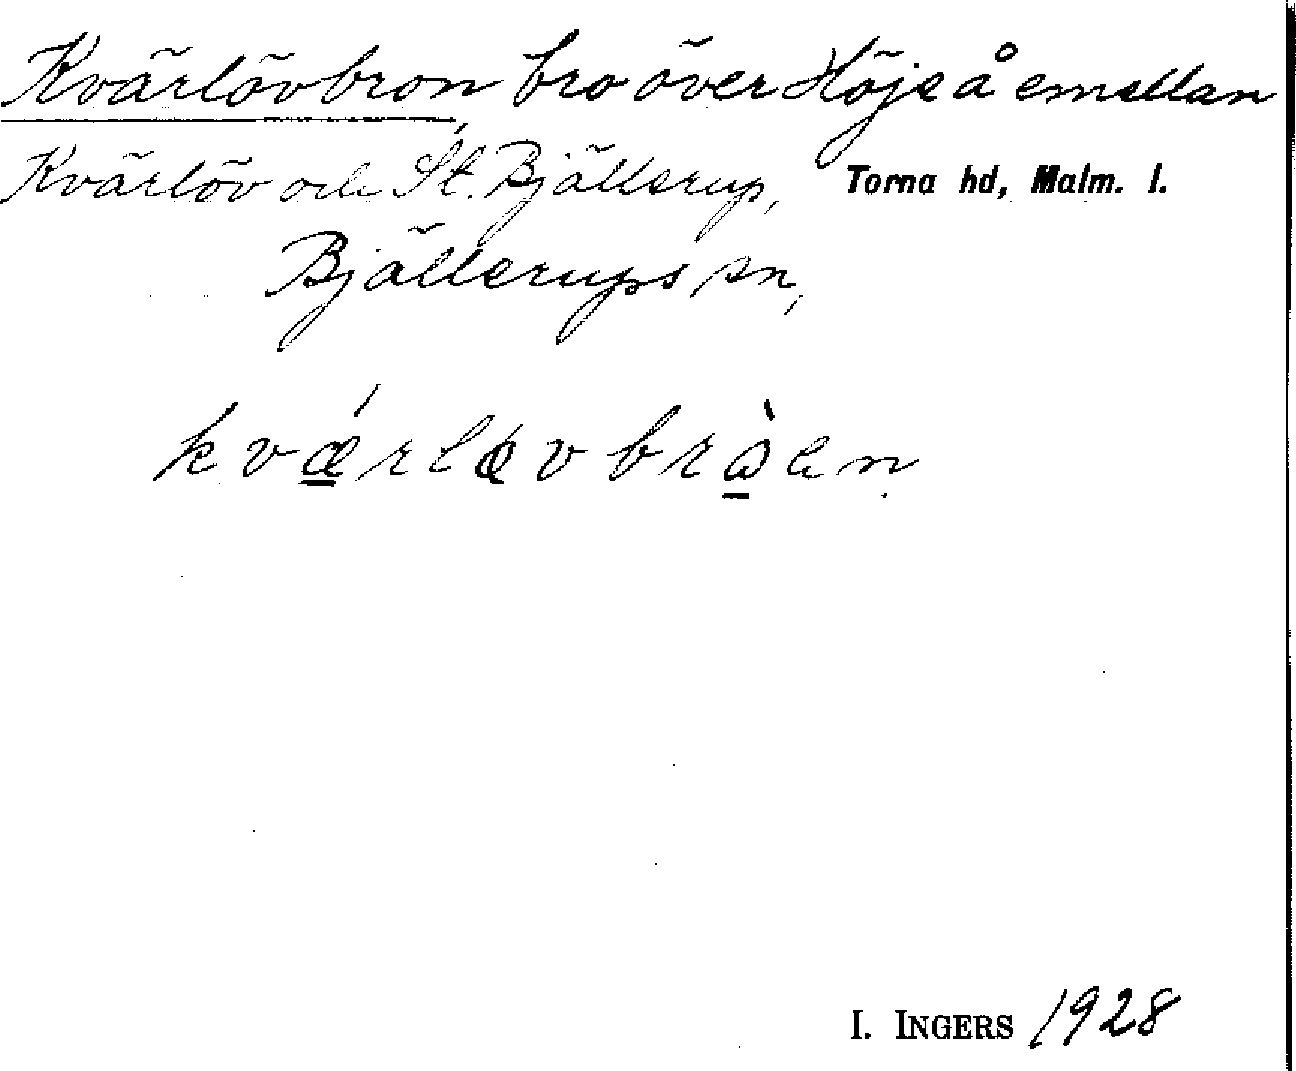 Kvärlövbron, bro över Höje å emellan
Kvärlöv och St. Bjällerup, Torna hd, Malm. l.
Bjällerups sn,
kvǽrløvbrò̱en
I. INGERS 1928